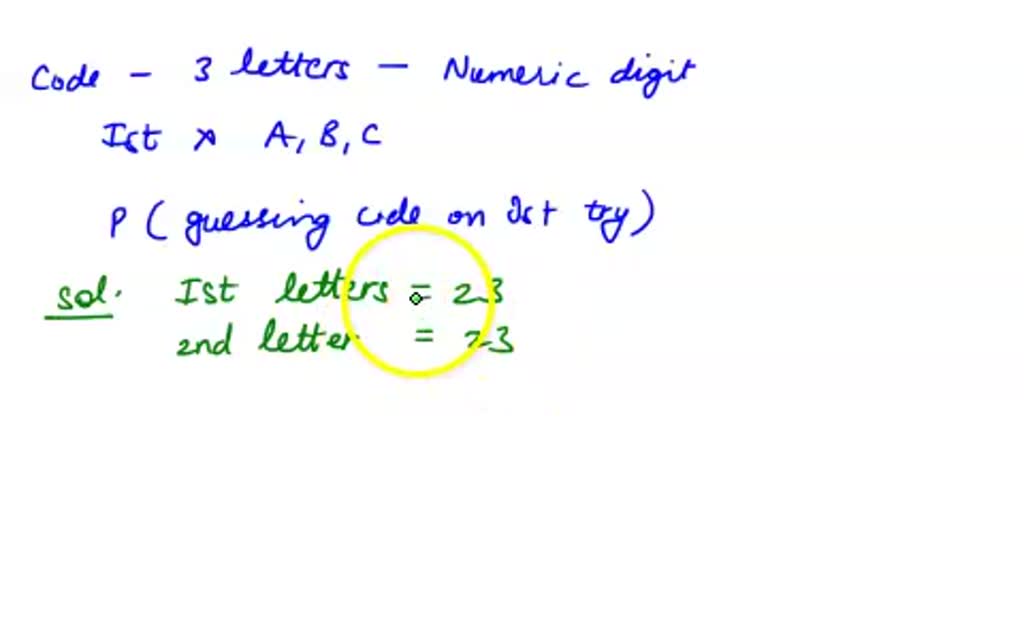 Code - 3 letters - Numeric digit
Ist × A, B, C
P ( guessing code on Ist try )
Sol. Ist letters = 23
2nd letter = 23